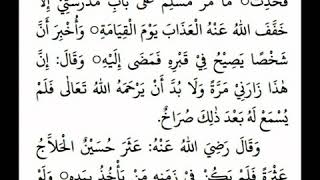 فَحَدَّثَ○ مَا مَرَّ مُسْلِمٌ عَلَى بَابِ مَدْرَسَتِيْ إِلَّا
خَفَّفَ اللهُ عَنْهُ الْعَذَابَ يَوْمَ الْقِيَامَةِ○ وَأُخْبِرَ أَنَّ
شَخْصًا يَصِيْحُ فِيْ قَبْرِهِ فَمَضَى إِلَيْهِ○ وَقَالَ: إِنَّ
هٰذَا زَارَنِيْ مَرَّةً وَلَا بُدَّ أَنْ يَرْحَمَهُ اللهُ تَعَالَى فَلَمْ
يُسْمَعْ لَهُ بَعْدَ ذٰلِكَ صُرَاخٌ.
وَقَالَ رَضِيَ اللهُ عَنْهُ: عَثَرَ حُسَيْنٌ الْحَلَّاجُ
عَثْرَةً فَلَمْ يَكُنْ فِيْ زَمَنِهِ مَنْ يَأْخُذُ بِيَدِهِ○ وَلَوْ